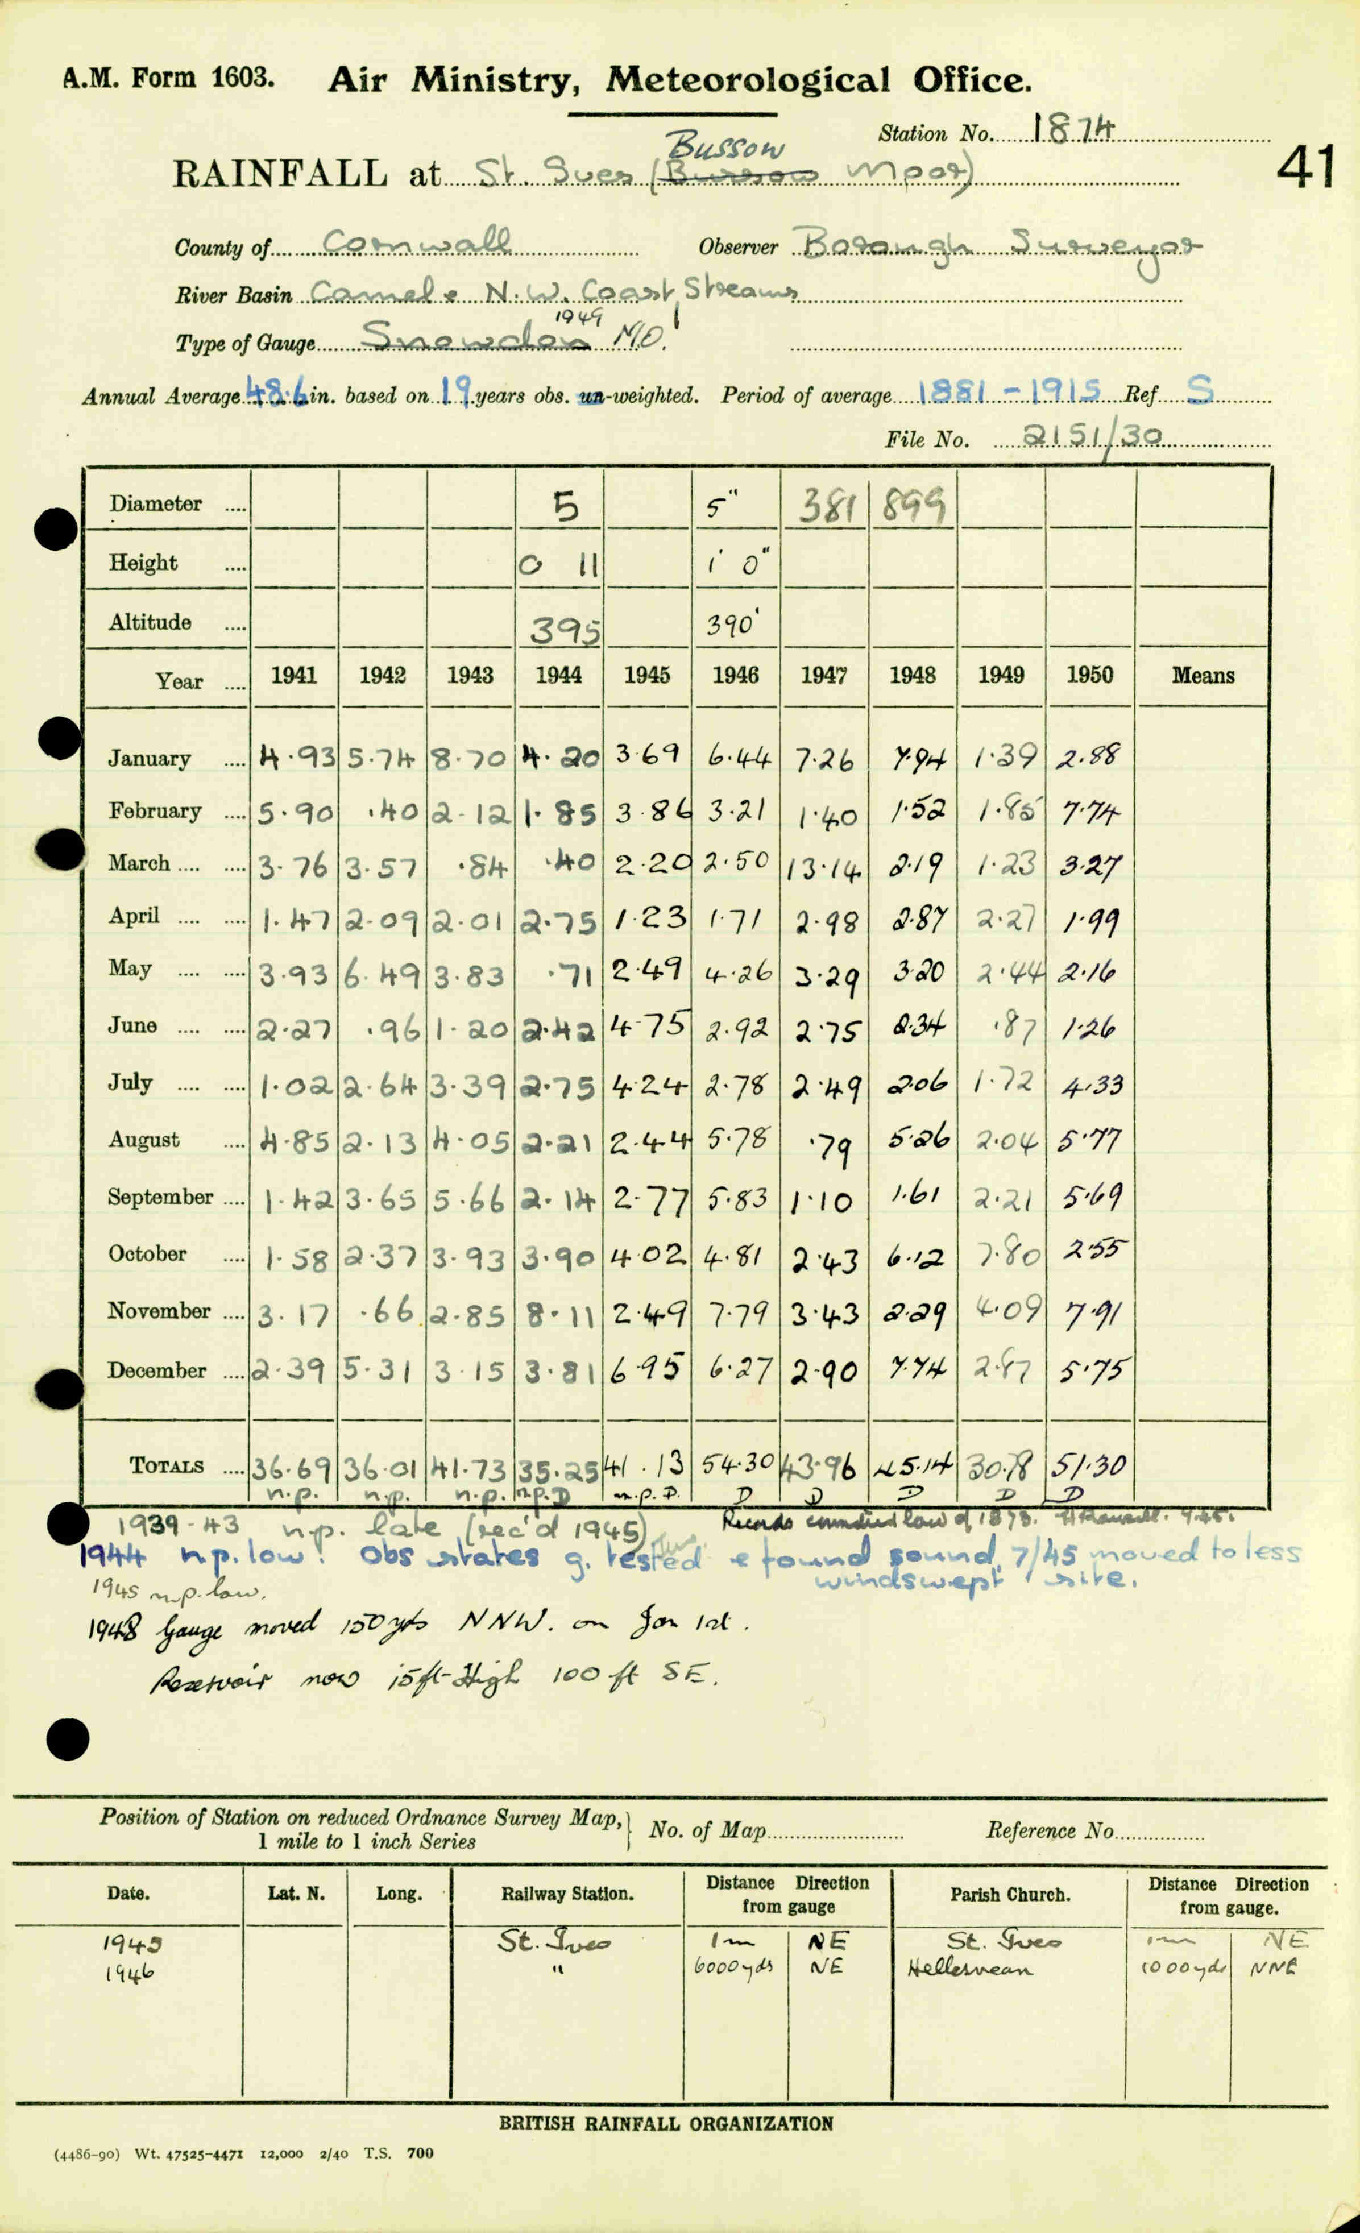 A.M. Form 1603. Air Ministry, Meteorological Office.
Station No. 1874
41
Bussow
RAINFALL at St. Ives (Bussow Moor)
County of Cornwall Observer Borough Surveyor
River Basin Camel & N.W. Coast Streams
1949
Type of Gauge Snowdon M.O.
Annual Average 48.6 in. based on 19 years obs. un-weighted. Period of average 1881 - 1915 Ref S
File No. 2151/30
Diameter .... 5 5" 381 899
Height .... 0 11 1' 0"
Altitude .... 395 390'
Year .... 1941 1942 1943 1944 1945 1946 1947 1948 1949 1950 Means
January .... 4.93 5.74 8.70 4.20 3.69 6.44 7.26 7.94 1.39 2.88
February .... 5.90 .40 2.12 1.85 3.86 3.21 1.40 1.52 1.85 7.74
March .... .... 3.76 3.57 .84 .40 2.20 2.50 13.14 2.19 1.23 3.27
April .... .... 1.47 2.09 2.01 2.75 1.23 1.71 2.98 2.87 2.27 1.99
May .... .... 3.93 6.49 3.83 .71 2.49 4.26 3.29 3.20 2.44 2.16
June .... .... 2.27 .96 1.20 2.42 4.75 2.92 2.75 2.34 .87 1.26
July .... .... 1.02 2.64 3.39 2.75 4.24 2.78 2.49 2.06 1.72 4.33
August .... 4.85 2.13 4.05 2.21 2.44 5.78 .79 5.26 2.04 5.77
September .... 1.42 3.65 5.66 2.14 2.77 5.83 1.10 1.61 2.21 5.69
October .... 1.58 2.37 3.93 3.90 4.02 4.81 2.43 6.12 7.80 2.55
November .... 3.17 .66 2.85 8.11 2.49 7.79 3.43 2.29 4.09 7.91
December .... 2.39 5.31 3.15 3.81 6.95 6.27 2.90 7.74 2.87 5.75
TOTALS .... 36.69 36.01 41.73 35.25 41.13 54.30 43.96 45.14 30.78 51.30
n.p. n.p. n.p. n.p. D n.p. D. D D D D D
1939-43 n.p. late (rec'd 1945) Records low of 1873.
1944 n.p. low. Obs states g. tested & found sound. 7/45 moved to less
windswept site.
1945 n.p. low.
1948 Gauge moved 150 yds NNW. on Jan 1st.
Reservoir now 15ft-High 100 ft SE.
Position of Station on reduced Ordnance Survey Map, 1 mile to 1 inch Series } No. of Map Reference No.
Date. Lat. N. Long. Railway Station. Distance Direction from gauge Parish Church. Distance Direction from gauge.
1945 St. Ives 1m NE St. Ives 1m NE
1946 " 6000yds NE Hellesvean 1000yds NNE
BRITISH RAINFALL ORGANIZATION
(4486-90) Wt. 47525-4471 12,000 2/40 T.S. 700